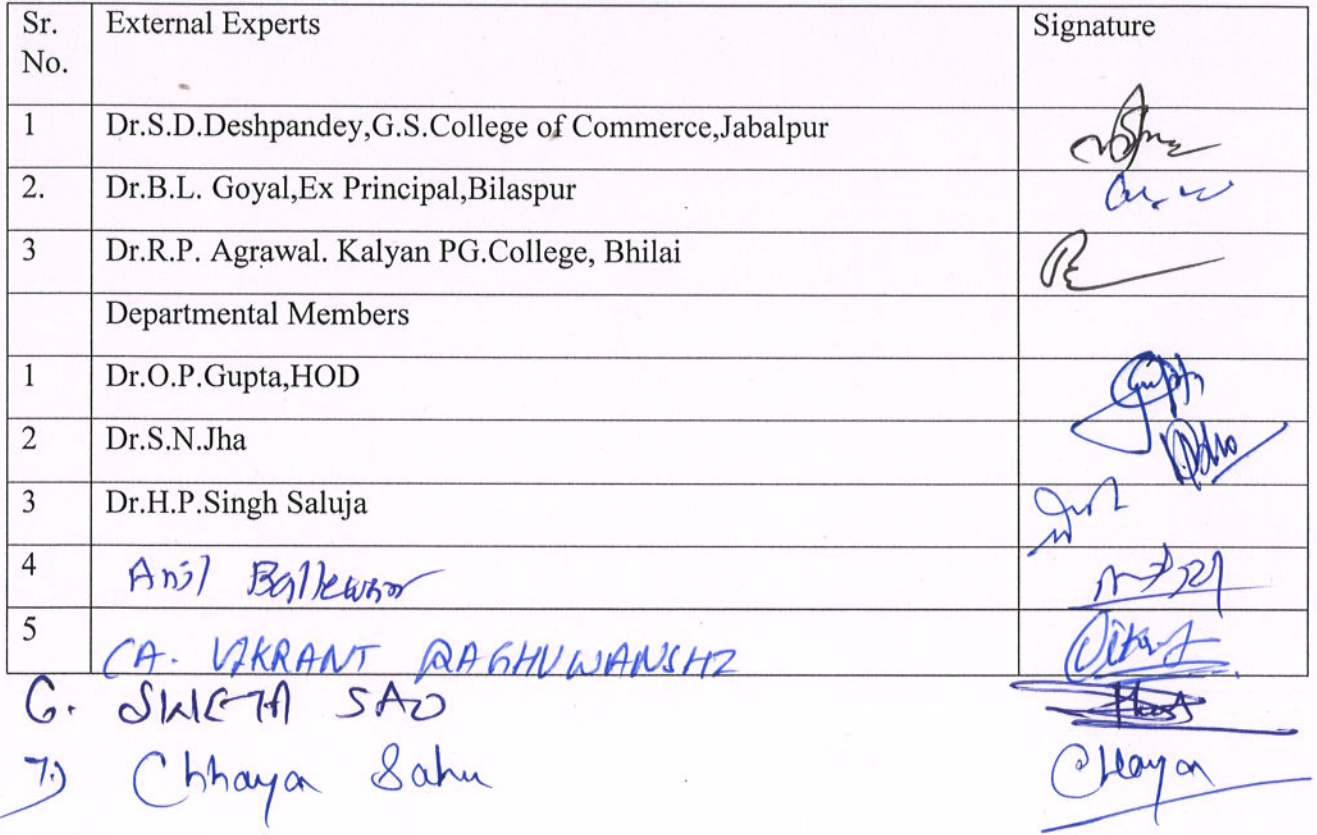 Sr. No. External Experts Signature
1 Dr.S.D.Deshpandey,G.S.College of Commerce,Jabalpur
2. Dr.B.L. Goyal,Ex Principal,Bilaspur
3 Dr.R.P. Agrawal. Kalyan PG.College, Bhilai
Departmental Members
1 Dr.O.P.Gupta,HOD Gupta
2 Dr.S.N.Jha
3 Dr.H.P.Singh Saluja
4 Anil
5 CA. VIKRANT RAGHUWANSHI
6. SWETA SAO
7.) Chhaya Sahu Chhaya